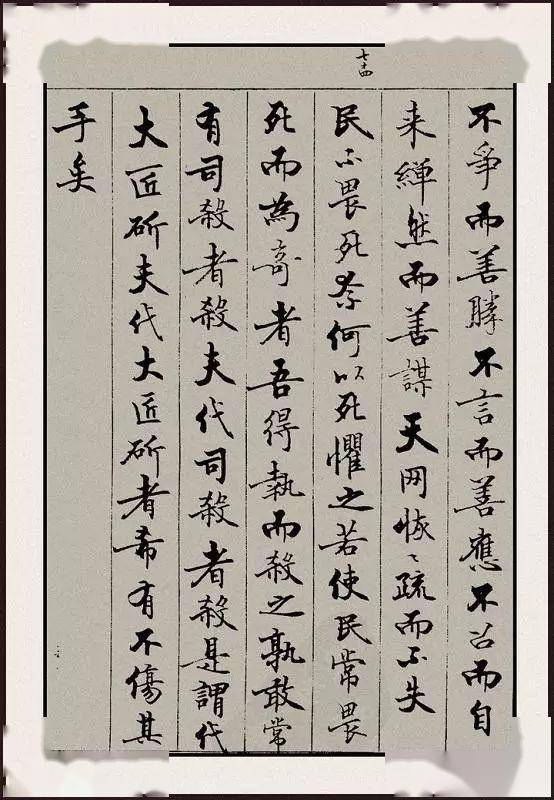 七十四
不爭而善勝不言而善應不召而自
来繟然而善謀天网恢〻疏而不失
民不畏死奈何以死懼之若使民常畏
死而為奇者吾得執而殺之孰敢常
有司殺者殺夫代司殺者殺是謂代
大匠斫夫代大匠斫者希有不傷其
手矣